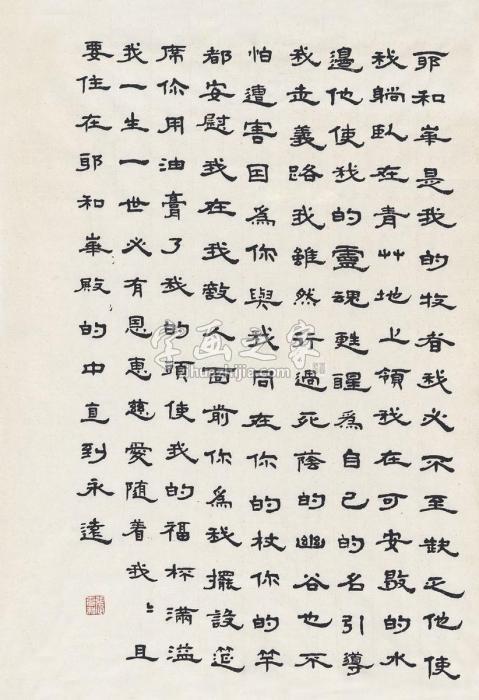 耶和華是我的牧者我必不至缺乏他使
我躺臥在青艸地上領我在可安歇的水
邊他使我的靈魂甦醒為自己的名引導
我走義路我雖然行過死蔭的幽谷也不
怕遭害因為你與我同在你的杖你的竿
都安慰我在我敵人面前你為我擺設筵
席你用油膏了我的頭使我的福杯滿溢
我一生一世必有恩惠慈愛隨着我〻且
要住在耶和華殿的中直到永遠
字画之家
zihuazhijia.com